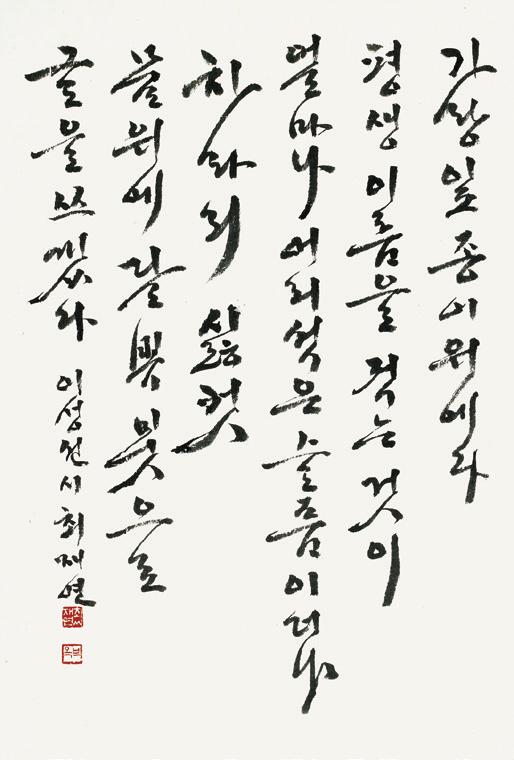 가랑잎 종이 위에다
평생 이름을 적는 것이
얼마나 어리석은 슬픔이더냐
차라리 싫컷
물 위에 달빛 붓으로
글을 쓰겠다 이성선 시 최재연